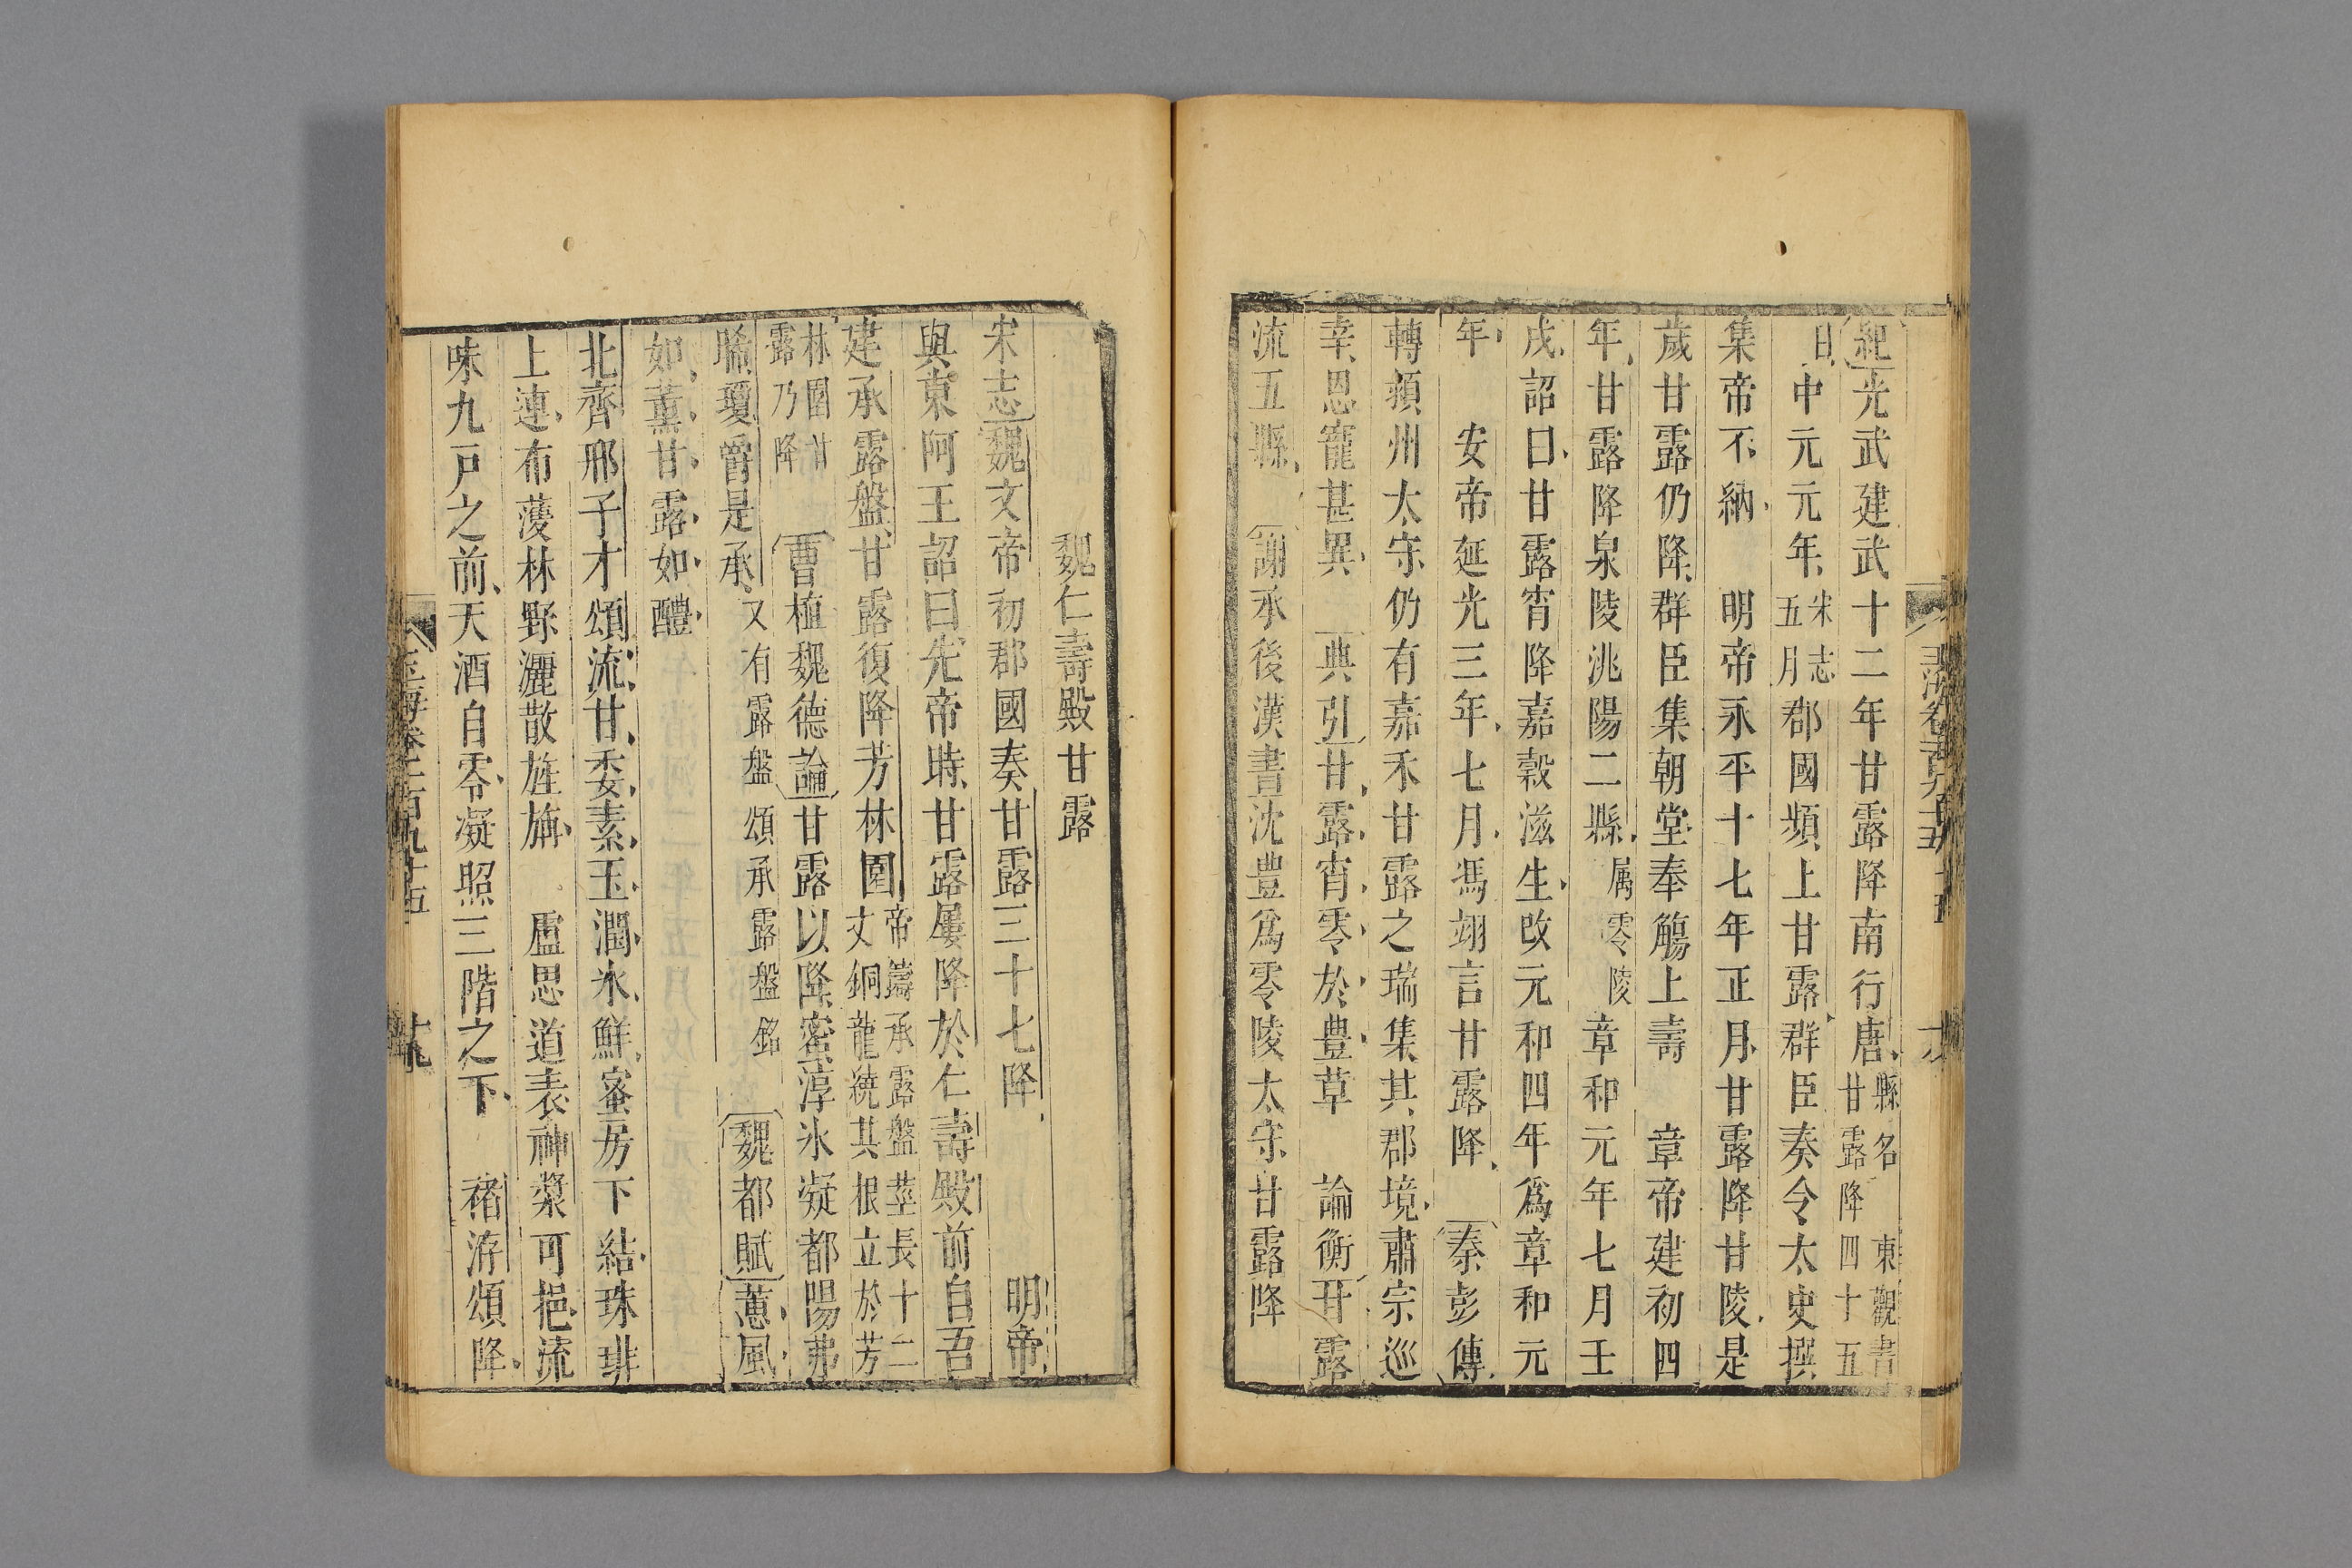 紀光武建武十二年甘露降南行唐縣名甘露降 東觀書四十五
日中元元年宋志五月郡國頻上甘露群臣奏令太史撰
集帝不納 明帝永平十七年正月甘露降甘陵是
歲甘露仍降群臣集朝堂奉觴上壽 章帝建初四
年甘露降泉陵洮陽二縣屬零陵 章和元年七月壬
戌詔曰甘露宵降嘉穀滋生改元和四年爲章和元
年 安帝延光三年七月馮翊言甘露降 秦彭傳
轉潁州太守仍有嘉禾甘露之瑞集其郡境肅宗巡
幸恩寵甚異 典引甘露宵零於豊草 論衡甘露
流五縣 謝承後漢書沈豊爲零陵太守甘露降
魏仁壽殿甘露
宋志魏文帝初郡國奏甘露三十七降 明帝
與東阿王詔曰先帝時甘露屢降於仁壽殿前自吾
建承露盤甘露復降芳林園帝鑄承露盤莖長十二丈銅龍繞其根立於芳
林園甘露乃降 曹植魏德論甘露以降蜜淳氷凝都陽弗
晞瓊爵是承又有露盤頌承露盤銘 魏都賦蕙風
如薰甘露如醴
北齊邢子才頌流甘委素玉潤氷鮮蜜房下結珠琲
上連布濩林野灑散旌旃 盧思道表神漿可挹流
味九戸之前天酒自零凝照三階之下 褚渟頌降